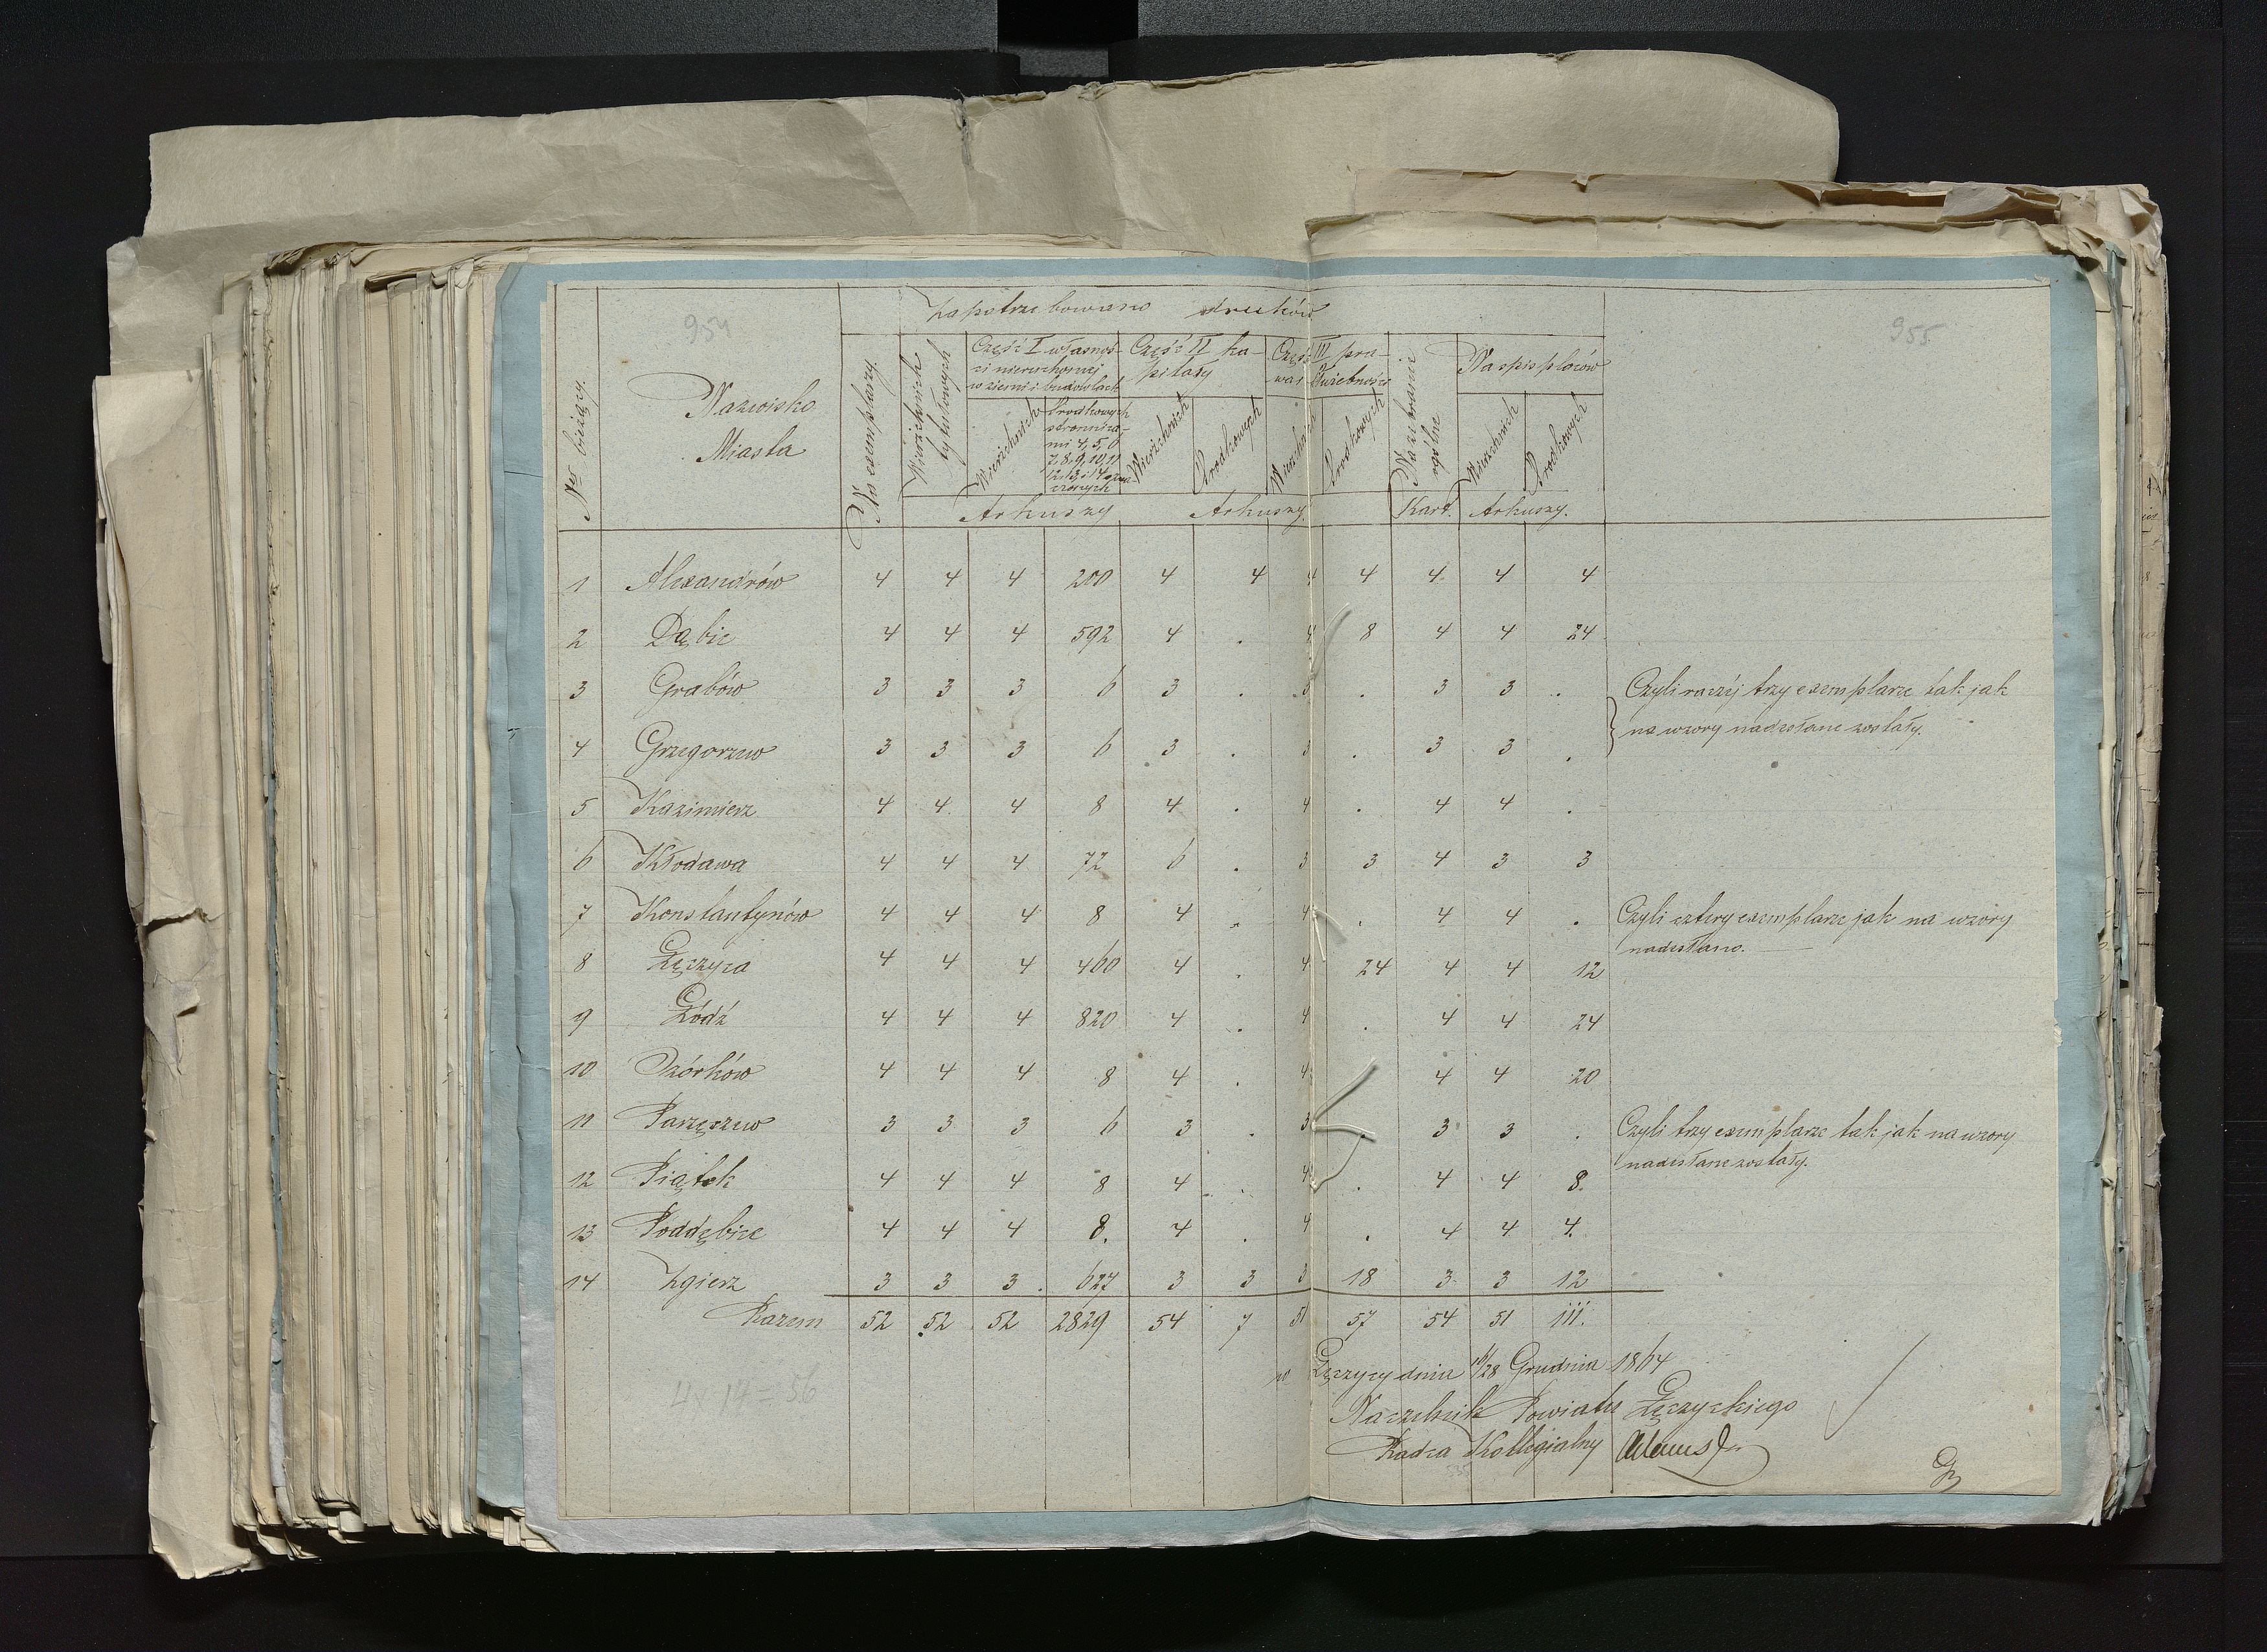 954
955
Zapotrzebowano druków
Nr bieżący.
Nazwisko
Miasta
Na exemplarzy.
Wierzchnich
tytułowych
Część I własnoś-
ci nieruchomej
w ziemi i budowlach
Część II ka-
pitały
Część III pra-
wa i służebności
Na zebranie
ogólne
Na spis placów
Wierzchnich
Środkowych
stronnica-
mi 4, 5, 6
7, 8, 9, 10, 11
12, 13 i 14 ozna-
czonych
Wierzchnich
Środkowych
Wierzchnich
Środkowych
Wierzchnich
Środkowych
Arkuszy
Arkuszy
Kart.
Arkuszy.
1 Alexandrów 4 4 4 200 4 4 4 4 4 4 4
2 Dąbie 4 4 4 592 4 . 4 8 4 4 24
3 Grabów 3 3 3 6 3 . 3 . 3 3 . Czyli raczéj trzy exemplarze tak jak
na wzory nadesłane zostały.
4 Grzegorzew 3 3 3 6 3 . 3 . 3 3 .
5 Kazimierz 4 4 4 8 4 . 4 . 4 4 .
6 Kłodawa 4 4 4 72 6 . 3 3 4 3 3
7 Konstantynów 4 4 4 8 4 . 4 . 4 4 . Czyli cztery exemplarze jak na wzory
nadesłano.
8 Łęczyca 4 4 4 460 4 . 4 24 4 4 12
9 Łódź 4 4 4 820 4 . 4 . 4 4 24
10 Ozórków 4 4 4 8 4 . 4 4 4 20
11 Parzęczew 3 3 3 6 3 . 3 . 3 3 . Czyli trzy exemplarze tak jak na wzory
nadesłane zostały.
12 Piątek 4 4 4 8 4 . 4 . 4 4 8.
13 Poddębice 4 4 4 8. 4 . 4 . 4 4 4.
14 Zgierz 3 3 3 627 3 3 3 18 3 3 12
Razem 52 52 52 2829 54 7 51 57 54 51 111.
4 x 14 = 56
w Łęczycy dnia 16/28 Grudnia 1864
Naczelnik Powiatu Łęczyckiego
Radca Kollegialny